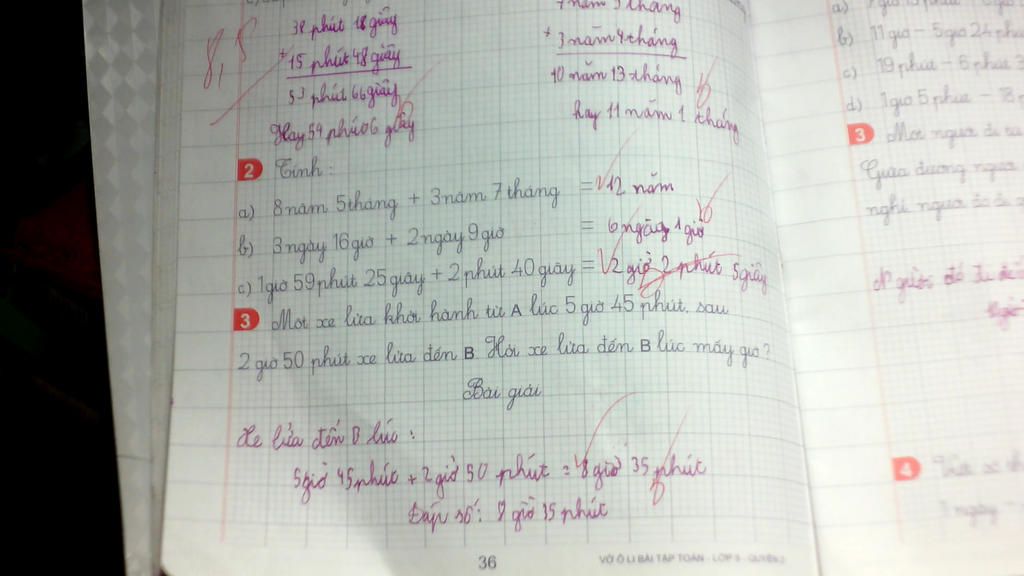 38 phút 18 giây
+ 15 phút 48 giây
53 phút 66 giây
Hay 54 phút 06 giây
8,5
7 năm 9 tháng
+ 3 năm 4 tháng
10 năm 13 tháng
hay 11 năm 1 tháng
2 Tính:
a) 8 năm 5 tháng + 3 năm 7 tháng = 12 năm
b) 3 ngày 16 giờ + 2 ngày 9 giờ = 6 ngày 1 giờ
c) 1 giờ 59 phút 25 giây + 2 phút 40 giây = 2 giờ 2 phút 5 giây
3 Một xe lửa khởi hành từ A lúc 5 giờ 45 phút, sau
2 giờ 50 phút xe lửa đến B. Hỏi xe lửa đến B lúc mấy giờ?
Bài giải
Xe lửa đến B lúc:
5 giờ 45 phút + 2 giờ 50 phút = 8 giờ 35 phút
Đáp số: 8 giờ 35 phút
36
VỞ Ô LI BÀI TẬP TOÁN - LỚP 5 - QUYỂN 2
a)
b) 11 giờ - 5 giờ 24 phút
c) 19 phút - 6 phút
d) 1 giờ 5 phút - 18
3 Một người đi
Quãng đường người
nghỉ người đó đi
Người đó đi
4
1 ngày